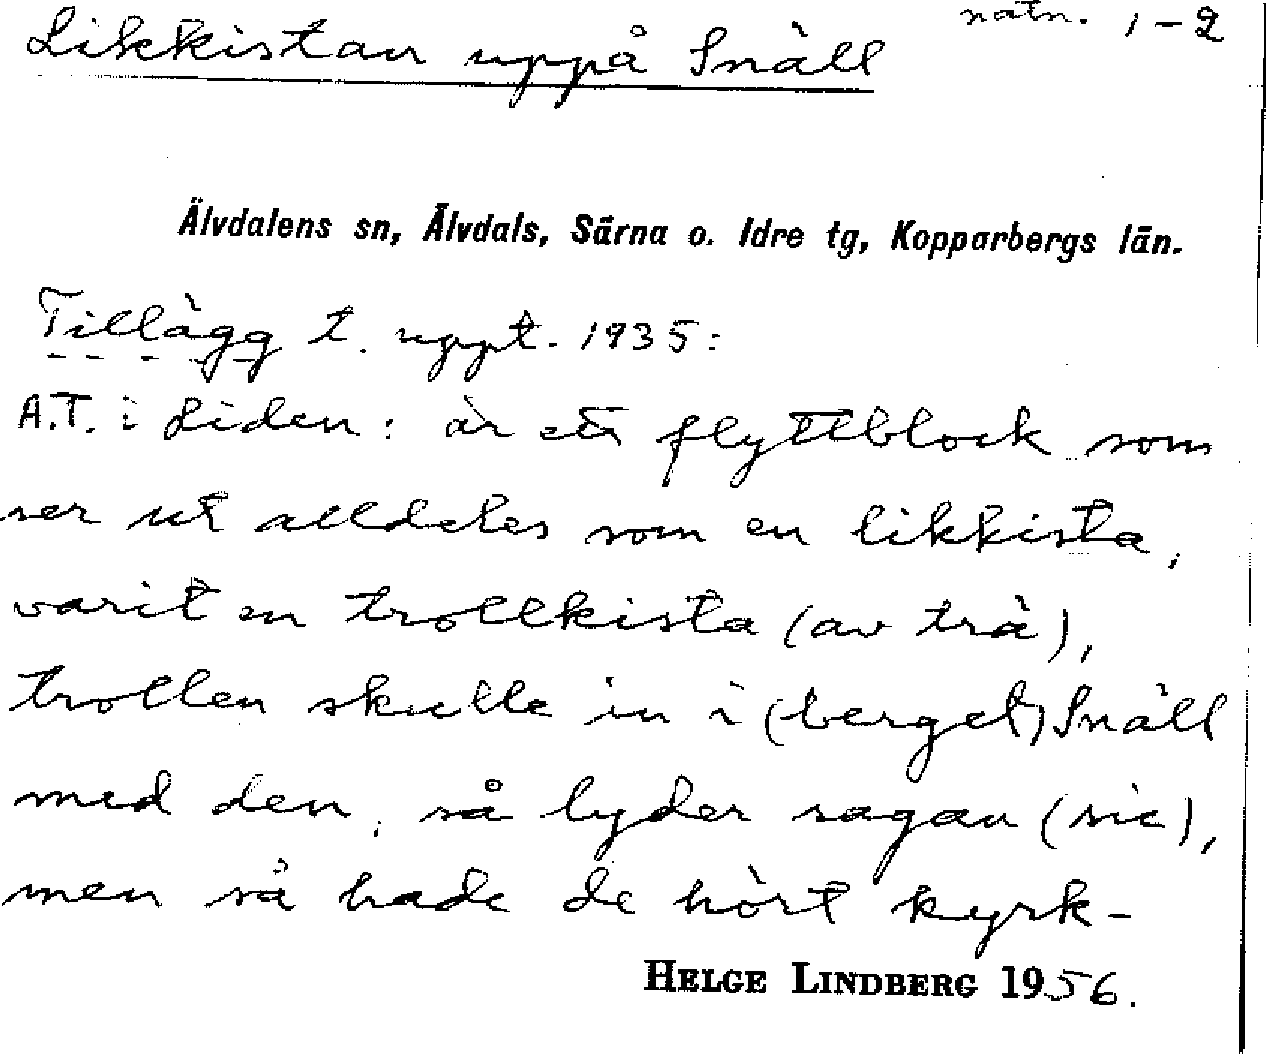 Likkistan uppå Snäll
natn. 1-2
Älvdalens sn, Älvdals, Särna o. Idre tg, Kopparbergs län.
Tillägg t. uppt. 1935:
A.T. i Liden: är ett flyttblock som
ser ut alldeles som en likkista,
varit en trollkista (av trä),
trollen skulle in i (berget) Snäll
med den, så lyder sagan (sic),
men så hade de hört kyrk-
HELGE LINDBERG 1956.